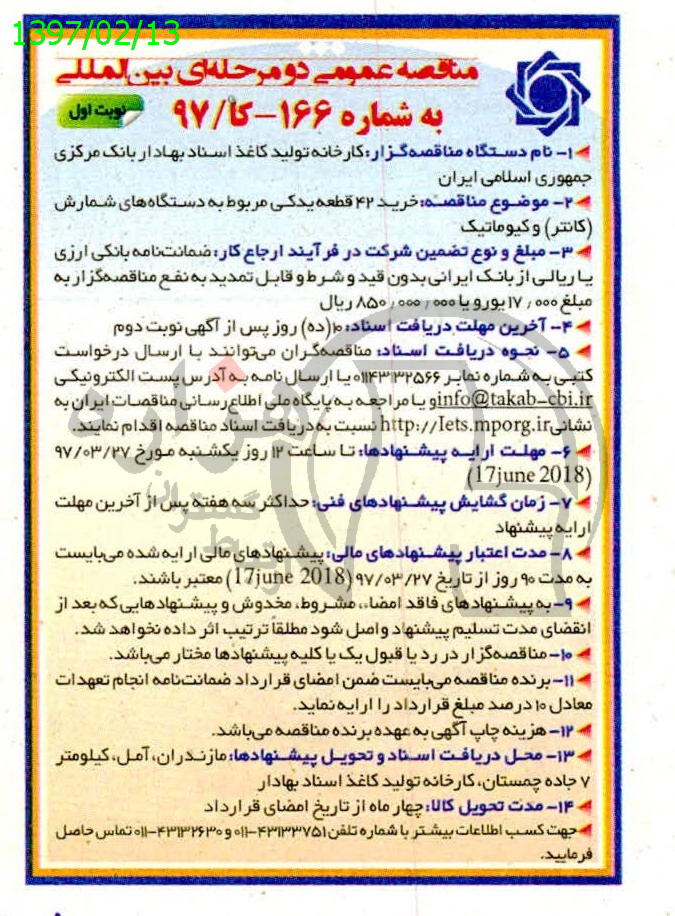 1397/02/13
مناقصه عمومی دو مرحله‌ای بین‌المللی
به شماره ۱۶۶-کا/۹۷
نوبت اول
۱- نام دستگاه مناقصه‌گزار: کارخانه تولید کاغذ اسناد بهادار بانک مرکزی
جمهوری اسلامی ایران
۲- موضوع مناقصه: خرید ۴۲ قطعه یدکی مربوط به دستگاه‌های شمارش
(کانتر) و کیوماتیک
۳- مبلغ و نوع تضمین شرکت در فرآیند ارجاع کار: ضمانت‌نامه بانکی ارزی
یا ریالی از بانک ایرانی بدون قید و شرط و قابل تمدید به نفع مناقصه‌گزار به
مبلغ ۱۷٫۰۰۰ یورو یا ۸۵۰٫۰۰۰٫۰۰۰ ریال
۴- آخرین مهلت دریافت اسناد: ۱۰(ده) روز پس از آگهی نوبت دوم
۵- نحوه دریافت اسناد: مناقصه‌گران می‌توانند با ارسال درخواست
کتبی به شماره نمابر ۰۱۱۴۳۱۳۲۵۶۶ یا ارسال نامه به آدرس پست الکترونیکی
info@takab-cbi.ir و یا مراجعه به پایگاه ملی اطلاع‌رسانی مناقصات ایران به
نشانی http://Iets.mporg.ir نسبت به دریافت اسناد مناقصه اقدام نمایند.
۶- مهلت ارایه پیشنهادها: تا ساعت ۱۲ روز یکشنبه مورخ ۹۷/۰۳/۲۷
(17june 2018)
۷- زمان گشایش پیشنهادهای فنی: حداکثر سه هفته پس از آخرین مهلت
ارایه پیشنهاد
۸- مدت اعتبار پیشنهادهای مالی: پیشنهادهای مالی ارایه شده می‌بایست
به مدت ۹۰ روز از تاریخ ۹۷/۰۳/۲۷ (17june 2018) معتبر باشند.
۹- به پیشنهادهای فاقد امضاء، مشروط، مخدوش و پیشنهادهایی که بعد از
انقضای مدت تسلیم پیشنهاد واصل شود مطلقاً ترتیب اثر داده نخواهد شد.
۱۰- مناقصه‌گزار در رد یا قبول یک یا کلیه پیشنهادها مختار می‌باشد.
۱۱- برنده مناقصه می‌بایست ضمن امضای قرارداد ضمانت‌نامه انجام تعهدات
معادل ۱۰ درصد مبلغ قرارداد را ارایه نماید.
۱۲- هزینه چاپ آگهی به عهده برنده مناقصه می‌باشد.
۱۳- محل دریافت اسناد و تحویل پیشنهادها: مازندران، آمل، کیلومتر
۷ جاده چمستان، کارخانه تولید کاغذ اسناد بهادار
۱۴- مدت تحویل کالا: چهار ماه از تاریخ امضای قرارداد
جهت کسب اطلاعات بیشتر با شماره تلفن ۴۳۱۳۳۷۵۱-۰۱۱ و ۴۳۱۳۲۶۳۰-۰۱۱ تماس حاصل
فرمایید.